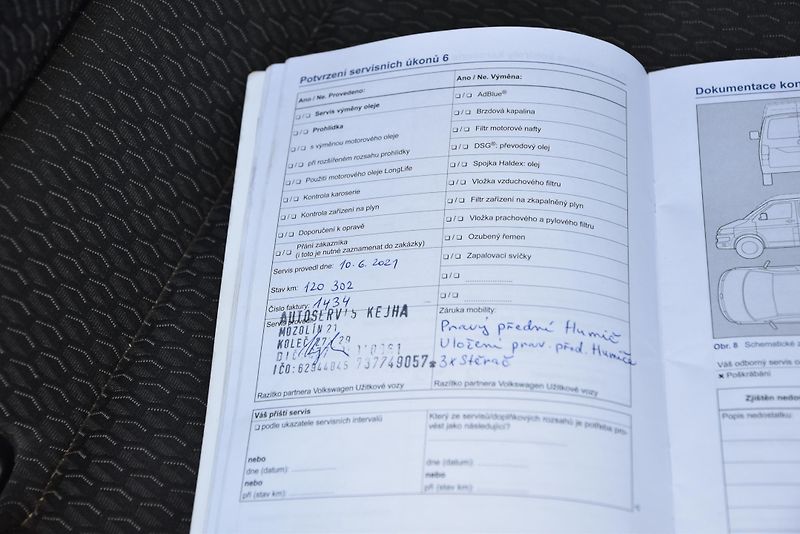 Potvrzení servisních úkonů 6
Ano / Ne. Provedeno:
❏ / ❏ Servis výměny oleje
❏ / ❏ Prohlídka
❏ / ❏ s výměnou motorového oleje
❏ / ❏ při rozšířeném rozsahu prohlídky
❏ / ❏ Použití motorového oleje LongLife
❏ / ❏ Kontrola karoserie
❏ / ❏ Kontrola zařízení na plyn
❏ / ❏ Doporučení k opravě
❏ / ❏ Přání zákazníka
(i toto je nutné zaznamenat do zakázky)
Servis provedl dne: 10.6.2021
Stav km: 120 302
Číslo faktury: 1434
AUTOSERVIS KEJHA
MOZOLÍN 21
KOLEČ 27329
IČO: 62944045 737749057
Razítko partnera Volkswagen Užitkové vozy
Ano / Ne. Výměna:
❏ / ❏ AdBlue®
❏ / ❏ Brzdová kapalina
❏ / ❏ Filtr motorové nafty
❏ / ❏ DSG®: převodový olej
❏ / ❏ Spojka Haldex: olej
❏ / ❏ Vložka vzduchového filtru
❏ / ❏ Filtr zařízení na zkapalněný plyn
❏ / ❏ Vložka prachového a pylového filtru
❏ / ❏ Ozubený řemen
❏ / ❏ Zapalovací svíčky
❏ / ❏
❏ / ❏
Záruka mobility:
Pravý přední tlumič
Uložení prav. před. tlumiče
3x stěrač
Razítko partnera Volkswagen Užitkové vozy
Váš příští servis
❏ podle ukazatele servisních intervalů
nebo
dne (datum):
nebo
při (stav km):
Který ze servisů/doplňkových rozsahů je potřeba pro-
vést jako následující?
nebo
dne (datum):
nebo
při (stav km):
Dokumentace kon
Obr. 8 Schematické z
Váš odborný servis o
× Poškrábání
Zjištěn nedo
Popis nedostatku: